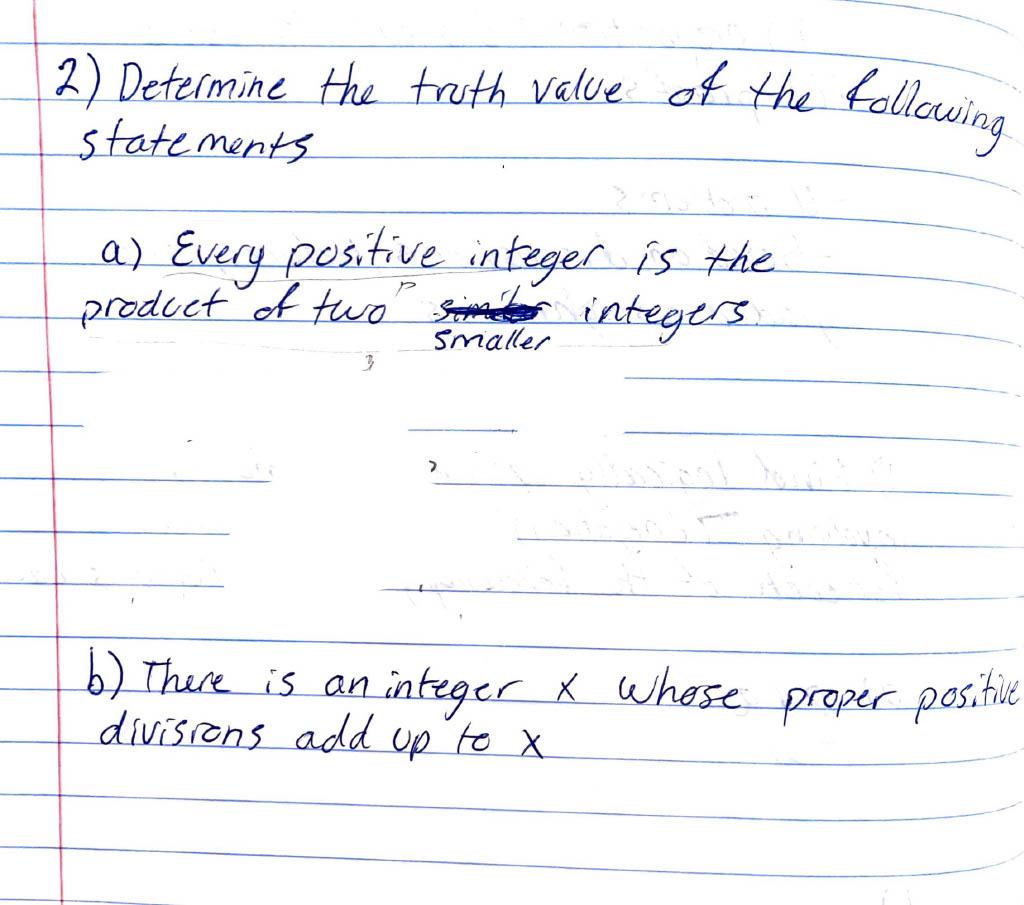 2) Determine the truth value of the following
statements
a) Every positive integer is the
product of two integers.
smaller
b) There is an integer x whose proper positive
divisions add up to x